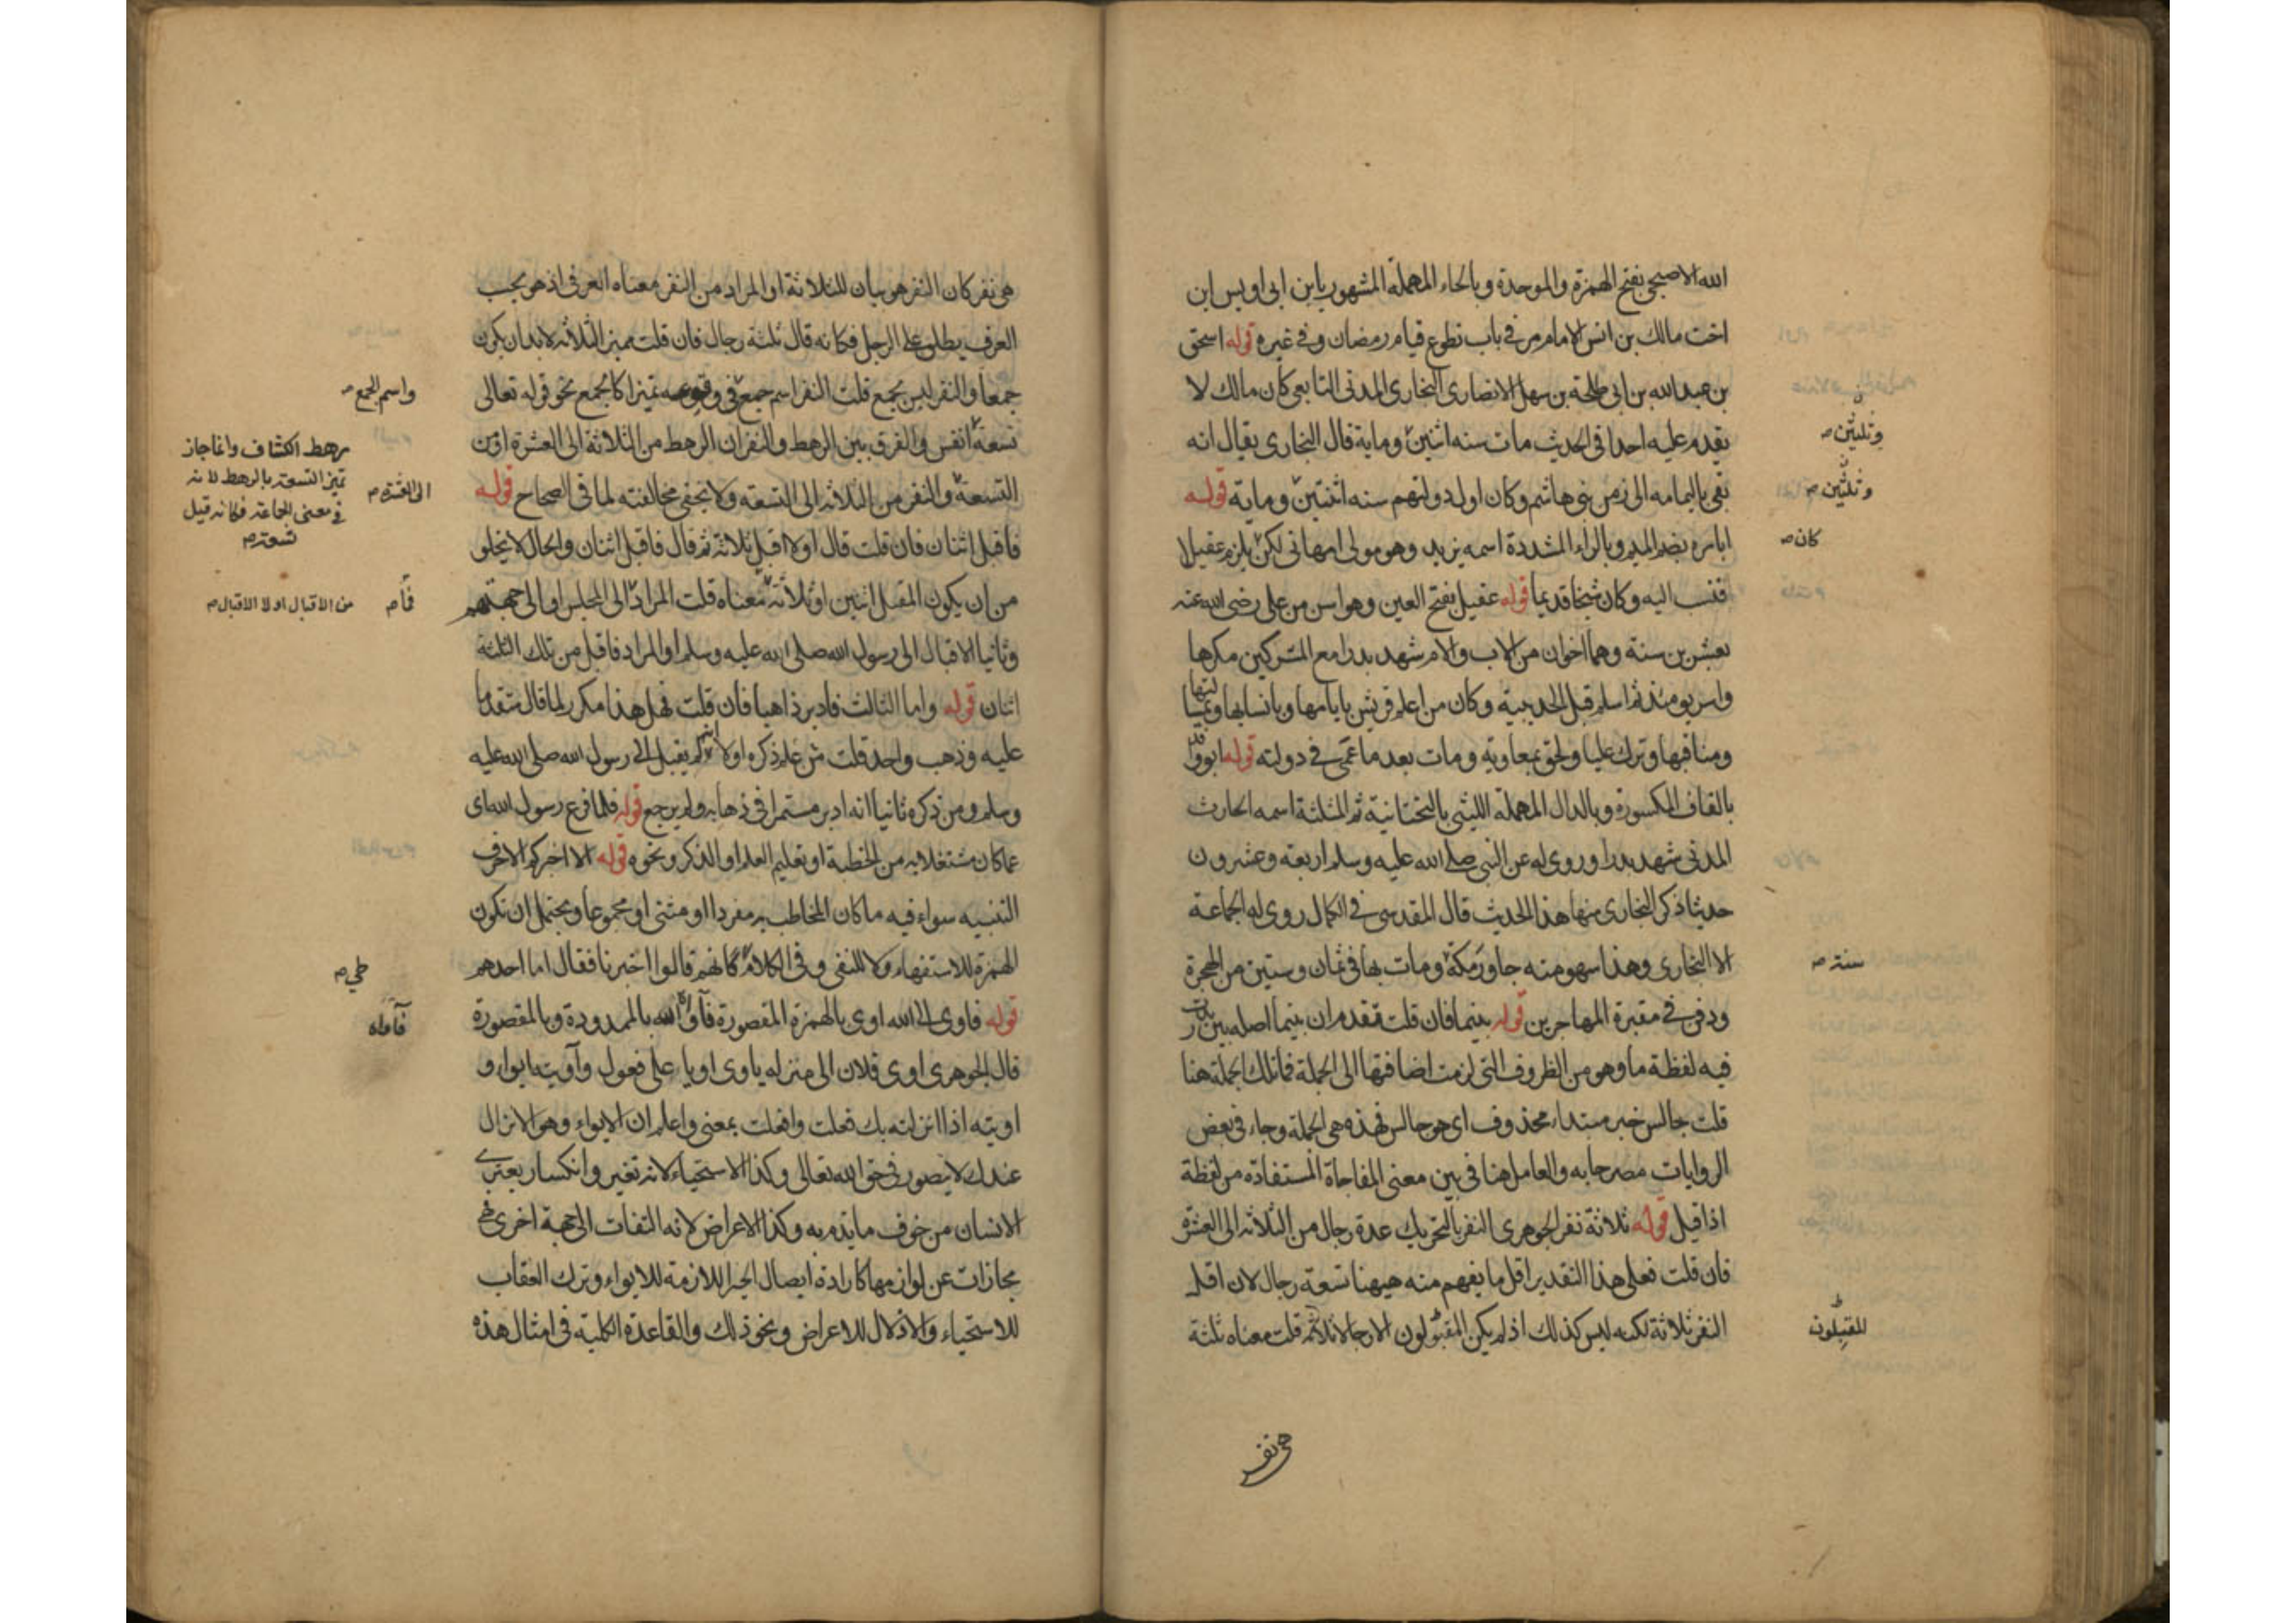 الله الاصبحي بفتح الهمزة والموحدة وبالحاء المهملة المشهور بابن ابي اويس ابن
اخت مالك بن انس الامام مر في باب تطوع قيام رمضان وفي غيره قوله اسحق
بن عبد الله بن ابي طلحة بن سهل الانصاري البخاري المدني التابعي كان مالك لا
يقدم عليه احدا في الحديث مات سنه اثنين وماية قال البخاري يقال انه
وثلثين صح
بقي باليمامه الى زمن بني هاشم وكان اول دولتهم سنه اثنتين وماية قوله
وثلثين صح
ابا مره بضم الميم وبالراء المشددة اسمه يزيد وهو مولى ام هاني لكن يلزم عقيلا
كان صح
فنسب اليه وكان شيخا قديما قوله عقيل بفتح العين وهو اسن من علي رضي الله عنه
بعشرين سنة وهما اخوان من الاب والام شهد بدرا مع المشركين مكرها
واسر يومئذ ثم اسلم قبل الحديبية وكان من اعلم قريش بايامها وبانسابها ومثالبها
ومناقبها وترك عليا ولحق بمعاوية ومات بعد ما عمي في دولته قوله ابو واقد
بالقاف المكسورة وبالدال المهملة الليثي بالتحتانية ثم المثلثة اسمه الحارث
المدني شهد بدرا وروي له عن النبي صلى الله عليه وسلم اربعة وعشرون
حديثا ذكر البخاري منها هذا الحديث قال المقدسي في الكمال روى له الجماعة
الا البخاري وهذا سهو منه جاور مكة ومات بها في ثمان وستين من الهجرة
سنة صح
ودفن في مقبرة المهاجرين قوله بينما فان قلت تقدم ان بينما اصله بين زيدت
فيه لفظة ما وهو من الظروف التي لزمت اضافتها الى الجملة فما تلك الجملة هنا
قلت جالس خبر مبتداء محذوف اي هو جالس فهذه هي الجملة وجاء في بعض
الروايات مصرحا به والعامل هنا في بين معنى المفاجاة المستفادة من لفظة
اذا قيل قوله ثلاثة نفر الجوهري النفر بالتحريك عدة رجال من الثلاثه الى العشره
فان قلت فعلى هذا التقدير اقل ما يفهم منه ههنا تسعة رجال لان اقل
النفر ثلاثة لكنه ليس كذلك اذ لم يكن المقبلون الا رجالا ثلاثه قلت معناه ثلثة
المقبلون
هي نفر
هي نفر كان النفر هو بيان للثلاثة او المراد من النفر معناه العرفي اذ هو بحسب
العرف يطلق على الرجل فكانه قال ثلثة رجال فان قلت مميز الثلاثه لابد ان يكون
جمعا والنفر ليس بجمع قلت النفر اسم جمع في وقوعه تميزا كالجمع نحو قوله تعالى
واسم الجمع صح
تسعة انفس والفرق بين الرهط والنفر ان الرهط من الثلاثة الى العشرة او من
رهط الكشاف وانما جاز
تميز التسعة بالرهط لانه
في معنى الجماعة فكانه قيل
تسعة صح
التسعة والنفر من الثلاثه الى التسعه ولا يخفى مخالفته لما في الصحاح قوله
الى العشرة صح
فاقبل اثنان فان قلت قال اولا اقبل ثلاثة ثم قال فاقبل اثنان والحال لا يخلو
من ان يكون المقبل اثنين او ثلاثة معناه قلت المراد الى المجلس او الى جهتهم
فما صح
من الاقبال اولا الاقبال صح
وثانيا الاقبال الى رسول الله صلى الله عليه وسلم او المراد فاقبل من تلك الثلثة
اثنان قوله واما الثالث فادبر ذاهبا فان قلت فهل هذا مكرر لما قال متقدما
عليه وذهب واحد قلت من علم ذكره اولا انه لم يقبل الى رسول الله صلى الله عليه
وسلم ومن ذكره ثانيا انه ادبر مستمرا في ذهابه ولم يرجع قوله فلما فرغ رسول الله اي
عما كان مشتغلا به من الخطبة او تعليم العلم او الذكر ونحوه قوله الا اخبركم الا حرف
التنبيه سواء فيه ما كان المخاطب به مفردا او مثنى او مجموعا ويحتمل ان تكون
الهمزة للاستفهام ولا للنفي وفي الكلام كانهم قالوا اخبرنا فقال اما احدهم
طي صح
قوله فاوى الى الله اوى بالهمزة المقصورة فآواه الله بالممدودة وبالمقصورة
فآواه
قال الجوهري اوى فلان الى منزله ياوي اويا على فعول وآويته ايواء و
اويته اذا انزلته بك فعلت وافعلت بمعنى واعلم ان الايواء وهو الانزال
عندك لا يتصور في حق الله تعالى وكذا الاستحياء لانه تغير وانكسار يعتري
الانسان من خوف ما يذم به وكذا الاعراض لانه التفات الى جهة اخرى فهي
مجازات عن لوازمها كارادة ايصال الخير اللازمة للايواء وترك العقاب
للاستحياء والاذلال للاعراض ونحو ذلك والقاعدة الكلية في امثال هذه